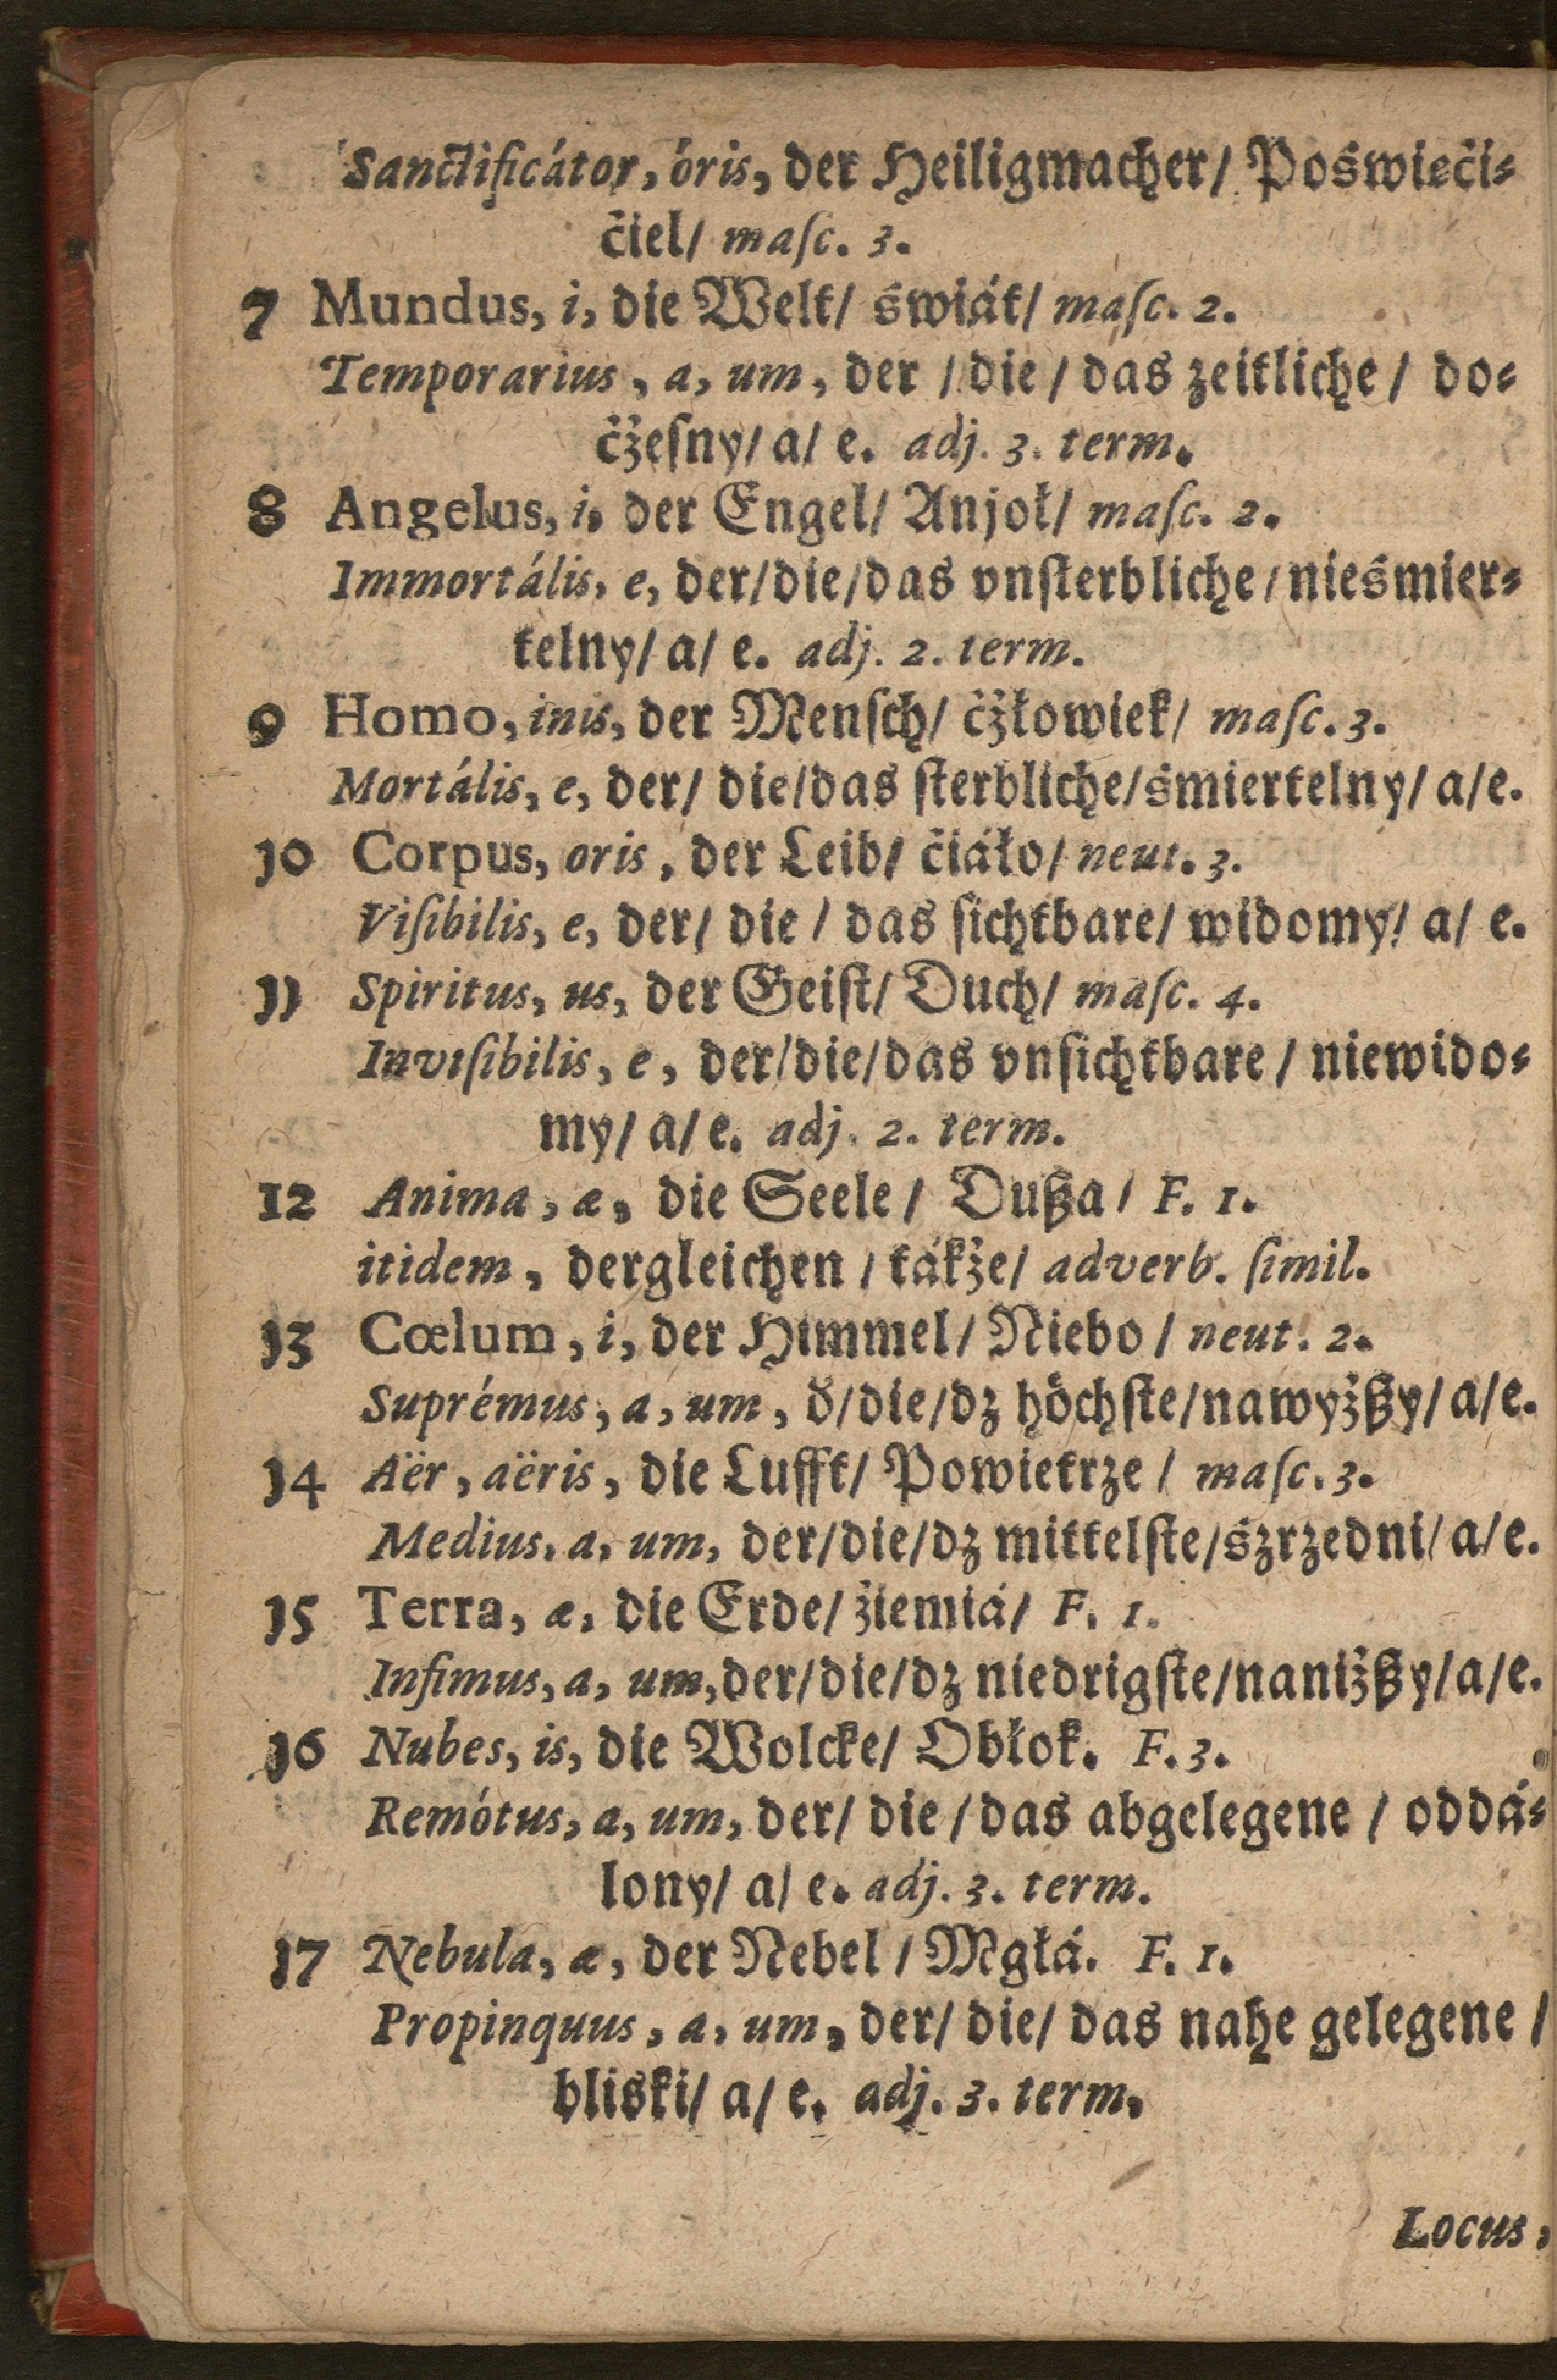 Sanctificátor, óris, der Heiligmacher/ Poświeći⸗
ćiel/ maſc. 3.
7 Mundus, i, die Welt/ świát/ maſc. 2.
Temporarius, a, um, der / die / das zeitliche / do⸗
cżeſny/ a/ e. adj. 3. term.
8 Angelus, i, der Engel/ Anjoł/ maſc. 2.
Immortális, e, der/die/das vnſterbliche / nieśmier⸗
telny/ a/ e. adj. 2. term.
9 Homo, inis, der Menſch/ cżłowiek/ maſc. 3.
Mortális, e, der/ die/das ſterbliche/śmiertelny/ a/e.
10 Corpus, oris, der Leib/ ćiáło/ neut. 3.
Viſibilis, e, der/ die / das ſichtbare/ widomy/ a/ e.
11 Spiritus, us, der Geiſt/ Duch/ maſc. 4.
Inviſibilis, e, der/die/das vnſichtbare / niewido⸗
my/ a/e. adj. 2. term.
12 Anima, æ, die Seele / Dußa / F. 1.
itidem, dergleichen / tákże/ adverb. ſimil.
13 Cœlum, i, der Himmel/ Niebo / neut. 2.
Suprémus, a, um, d̄/die/dz höchſte/nawyżßy/ a/e.
14 Aër, aëris, die Lufft/ Powietrze / maſc. 3.
Medius, a, um, der/die/dz mittelſte/śzrzedni/ a/e.
15 Terra, æ, die Erde/ źiemiá/ F. 1.
Infimus, a, um, der/die/dz niedrigſte/naniżßy/a/e.
16 Nubes, is, die Wolcke/ Obłok. F. 3.
Remótus, a, um, der/ die / das abgelegene / oddá⸗
lony/ a/ e. adj. 3. term.
17 Nebula, æ, der Nebel / Mgłá. F. 1.
Propinquus, a, um, der/ die/ das nahe gelegene /
bliski/ a/ e. adj. 3. term.
Locus,